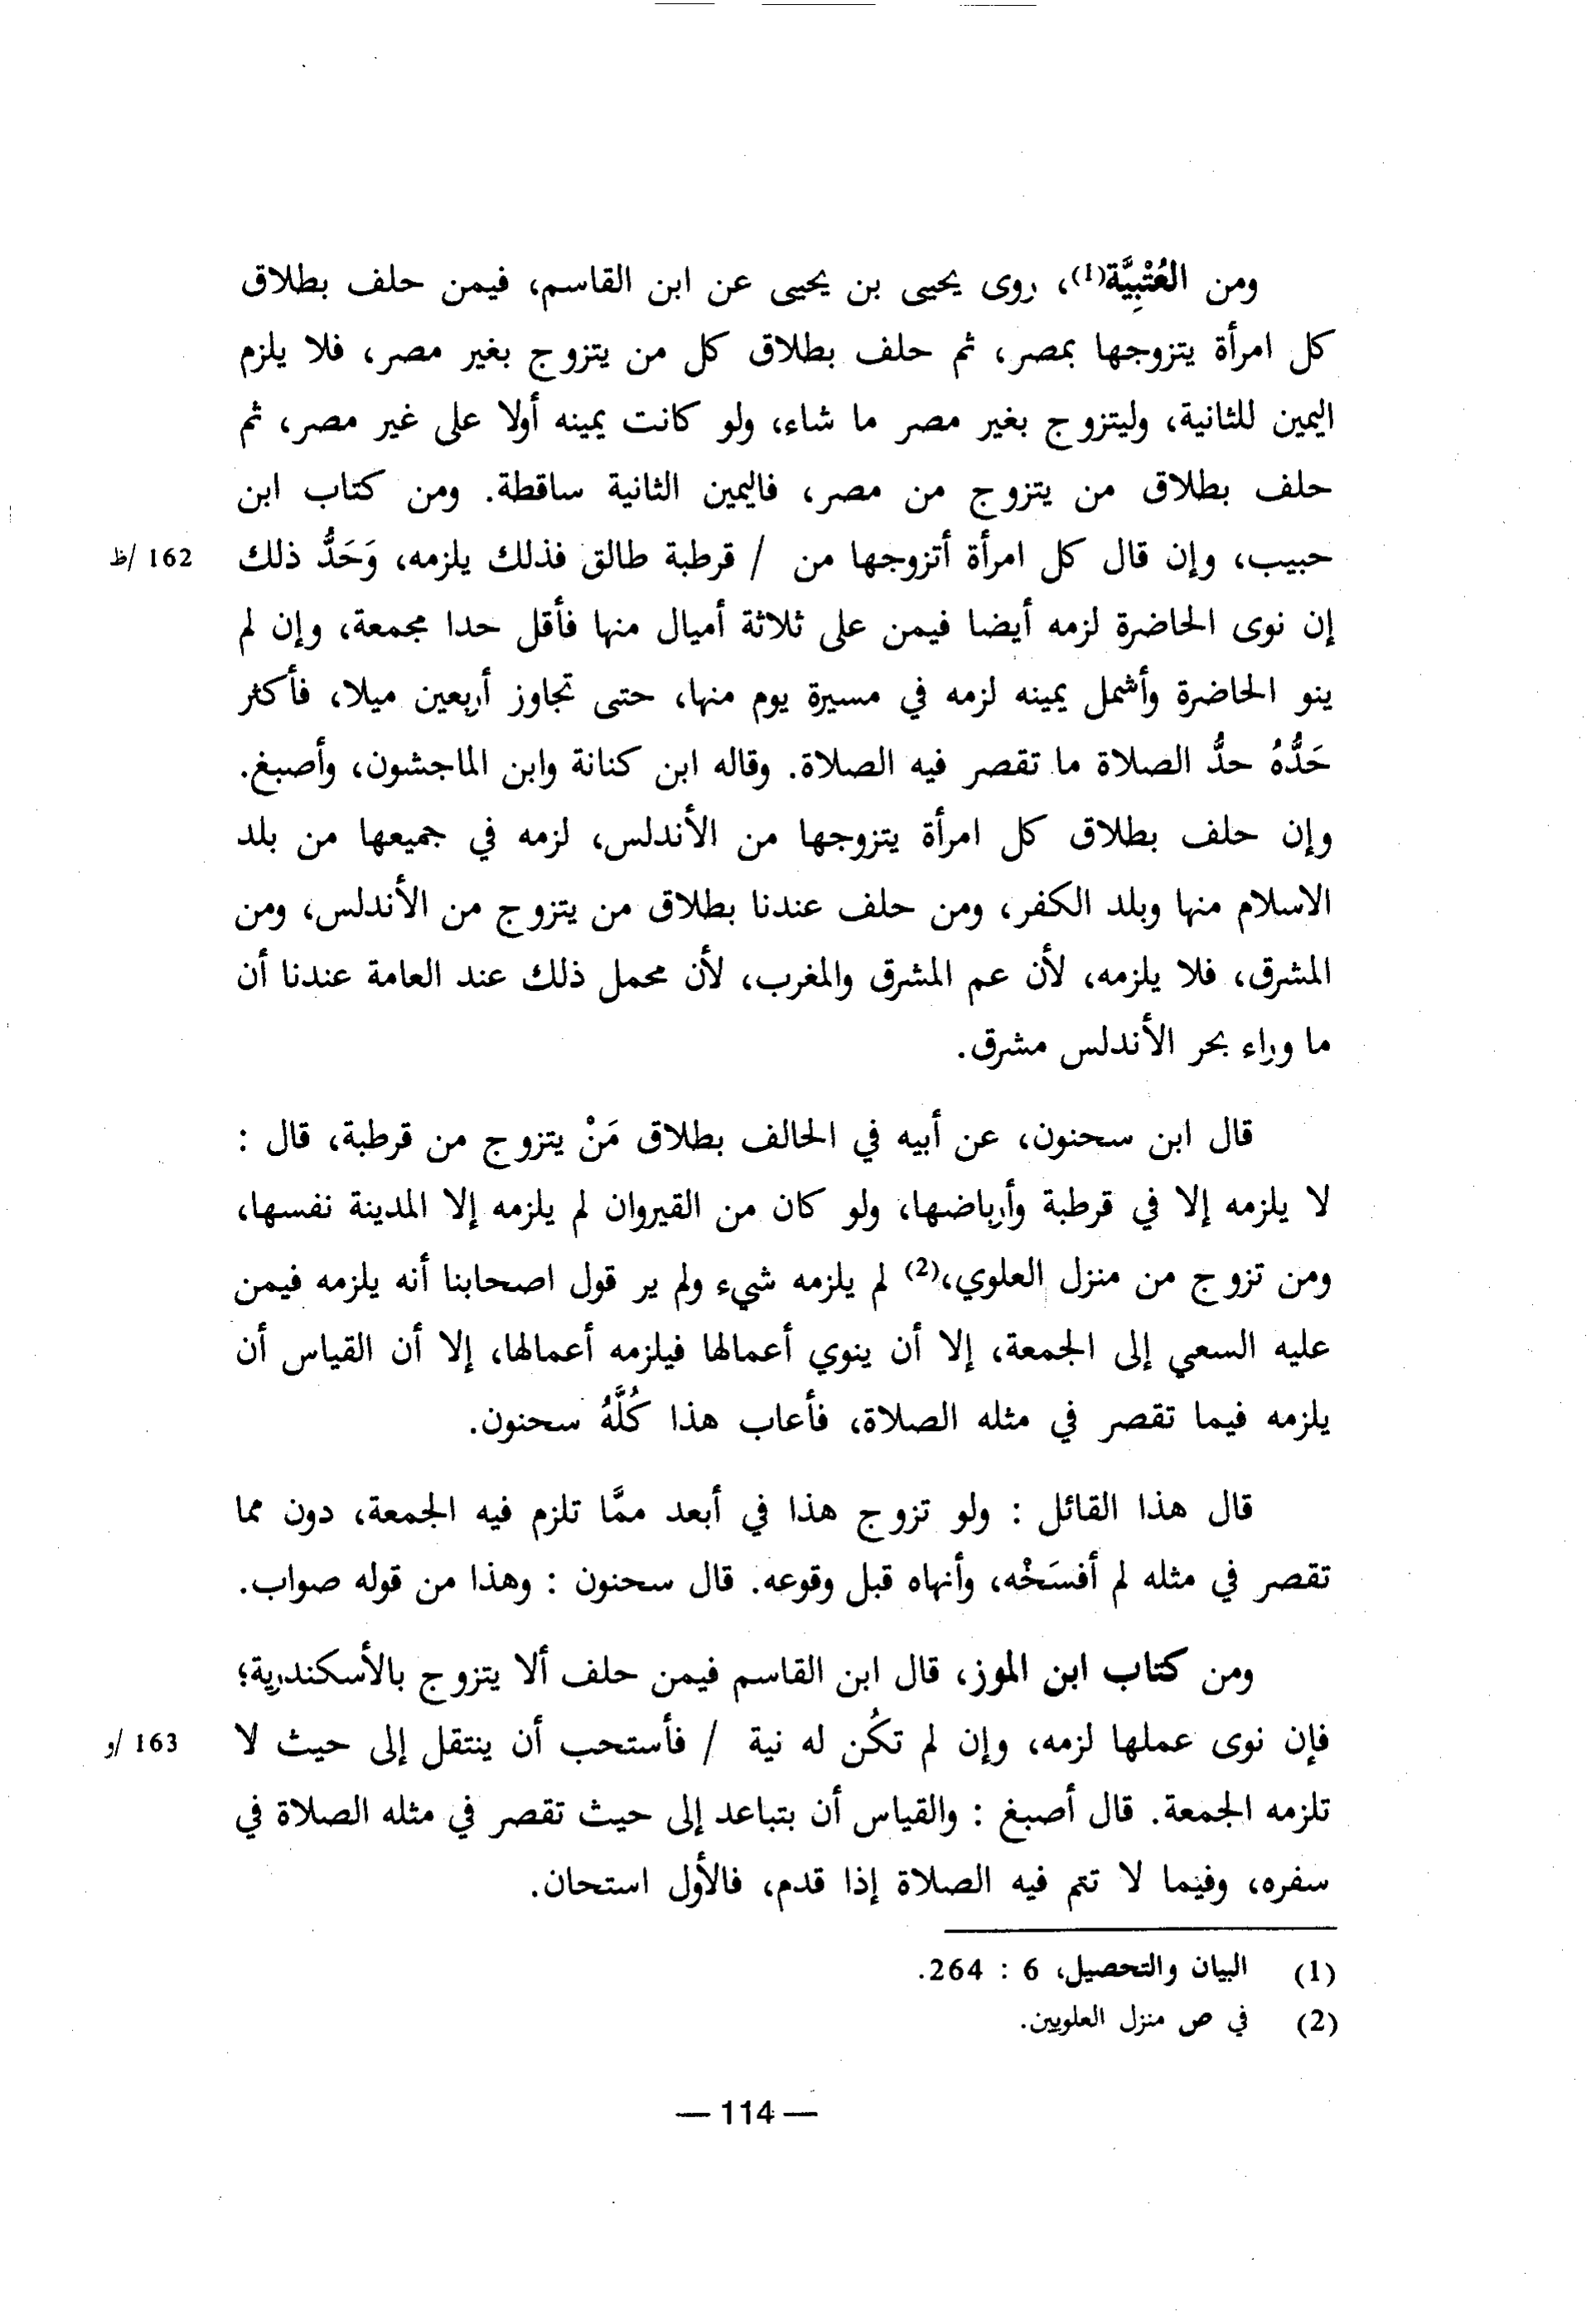 ومن العُتْبِيَّة(1)، روى يحيى بن يحيى عن ابن القاسم، فيمن حلف بطلاق
كل امرأة يتزوجها بمصر، ثم حلف بطلاق كل من يتزوج بغير مصر، فلا يلزم
اليمين للثانية، وليتزوج بغير مصر ما شاء، ولو كانت يمينه أولا على غير مصر، ثم
حلف بطلاق من يتزوج من مصر، فاليمين الثانية ساقطة. ومن كتاب ابن
حبيب، وإن قال كل امرأة أتزوجها من / قرطبة طالق فذلك يلزمه، وَحَدُّ ذلك 162 /ظ
إن نوى الحاضرة لزمه أيضا فيمن على ثلاثة أميال منها فأقل حدا مجمعة، وإن لم
ينو الحاضرة وأشمل يمينه لزمه في مسيرة يوم منها، حتى تجاوز أربعين ميلا، فأكثر
حَدُّهُ حدُّ الصلاة ما تقصر فيه الصلاة. وقاله ابن كنانة وابن الماجشون، وأصبغ.
وإن حلف بطلاق كل امرأة يتزوجها من الأندلس، لزمه في جميعها من بلد
الاسلام منها وبلد الكفر، ومن حلف عندنا بطلاق من يتزوج من الأندلس، ومن
المشرق، فلا يلزمه، لأن عم المشرق والمغرب، لأن محمل ذلك عند العامة عندنا أن
ما وراء بحر الأندلس مشرق.
قال ابن سحنون، عن أبيه في الحالف بطلاق مَنْ يتزوج من قرطبة، قال :
لا يلزمه إلا في قرطبة وأرباضها، ولو كان من القيروان لم يلزمه إلا المدينة نفسها،
ومن تزوج من منزل العلوي،(2) لم يلزمه شيء ولم ير قول اصحابنا أنه يلزمه فيمن
عليه السعي إلى الجمعة، إلا أن ينوي أعمالها فيلزمه أعمالها، إلا أن القياس أن
يلزمه فيما تقصر في مثله الصلاة، فأعاب هذا كُلَّهُ سحنون.
قال هذا القائل : ولو تزوج هذا في أبعد ممَّا تلزم فيه الجمعة، دون مما
تقصر في مثله لم أفسَخْه، وأنهاه قبل وقوعه. قال سحنون : وهذا من قوله صواب.
ومن كتاب ابن الموز، قال ابن القاسم فيمن حلف ألا يتزوج بالأسكندرية؛
فإن نوى عملها لزمه، وإن لم تكُن له نية / فأستحب أن ينتقل إلى حيث لا 163 /و
تلزمه الجمعة. قال أصبغ : والقياس أن بتباعد إلى حيث تقصر في مثله الصلاة في
سفره، وفيما لا تتم فيه الصلاة إذا قدم، فالأول استحان.
(1) البيان والتحصيل، 6 : 264.
(2) في ص منزل العلويين.
— 114 —